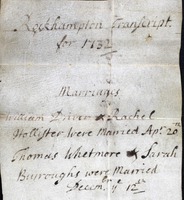 Rockhampton Transcript
for 1732
Marriages
William Driver & Rachel
Hollister Were Married Apr 20th
Thomas Whetmore & Sarah
Burroughs were Married
Decembr ye 12th